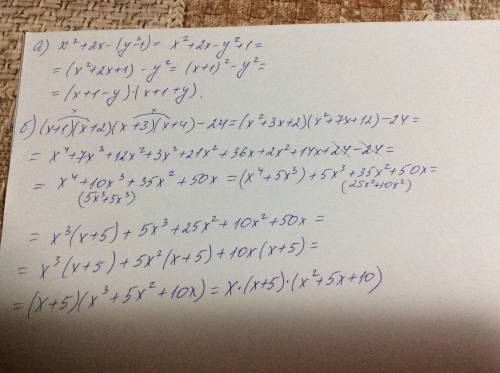 а) x²+2x-(y²-1)= x²+2x-y²+1=
=(x²+2x+1)-y²= (x+1)²-y²=
=(x+1-y)·(x+1+y).
б) (x+1)(x+2)(x+3)(x+4)-24=(x²+3x+2)(x²+7x+12)-24=
= x⁴+7x³+12x²+3x³+21x²+36x+2x²+14x+24-24=
= x⁴+10x³+35x²+50x = (x⁴+5x³)+5x³+35x²+50x=
(5x³+5x³) (25x²+10x²)
= x³(x+5)+5x³+25x²+10x²+50x=
= x³(x+5)+5x²(x+5)+10x(x+5)=
=(x+5)(x³+5x²+10x)= x·(x+5)·(x²+5x+10)